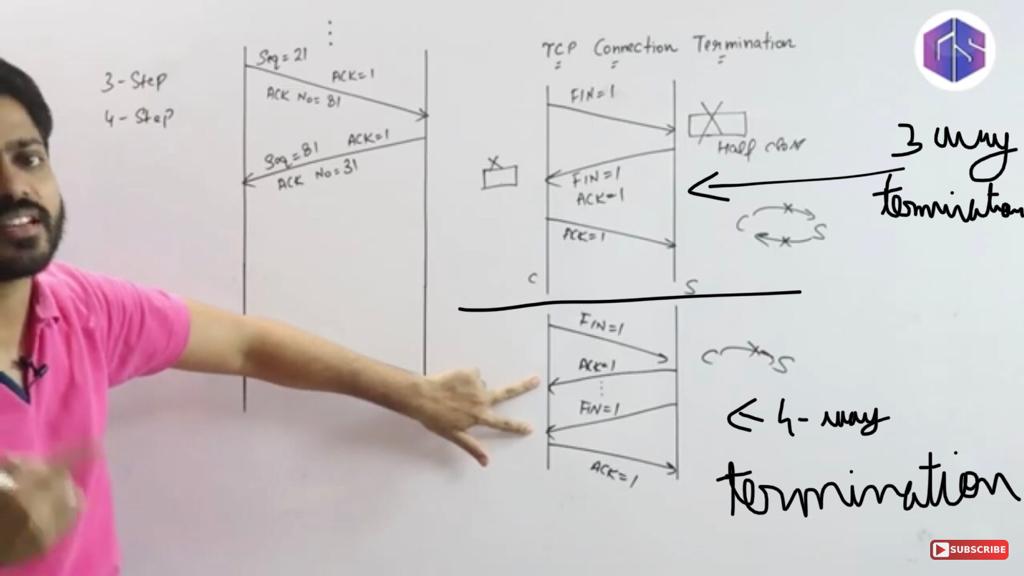 3-Step
4-Step
Seq=21
ACK=1
ACK No=81
ACK=1
Seq=81
ACK No=31
TCP Connection Termination
FIN=1
Half close
FIN=1
ACK=1
ACK=1
C S
C S
3 way
termination
FIN=1
ACK=1
FIN=1
ACK=1
C S
4-way
termination
SUBSCRIBE